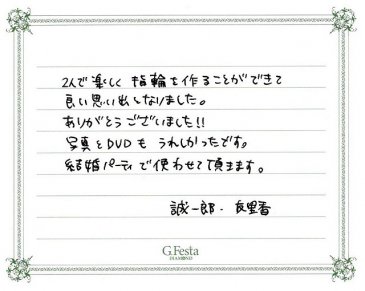 2人で楽しく指輪を作ることができて
良い思い出となりました。
ありがとうございました!!
写真とDVDもうれしかったです。
結婚パーティで使わせて頂きます。
誠一郎・友里香
G.Festa
DIAMOND